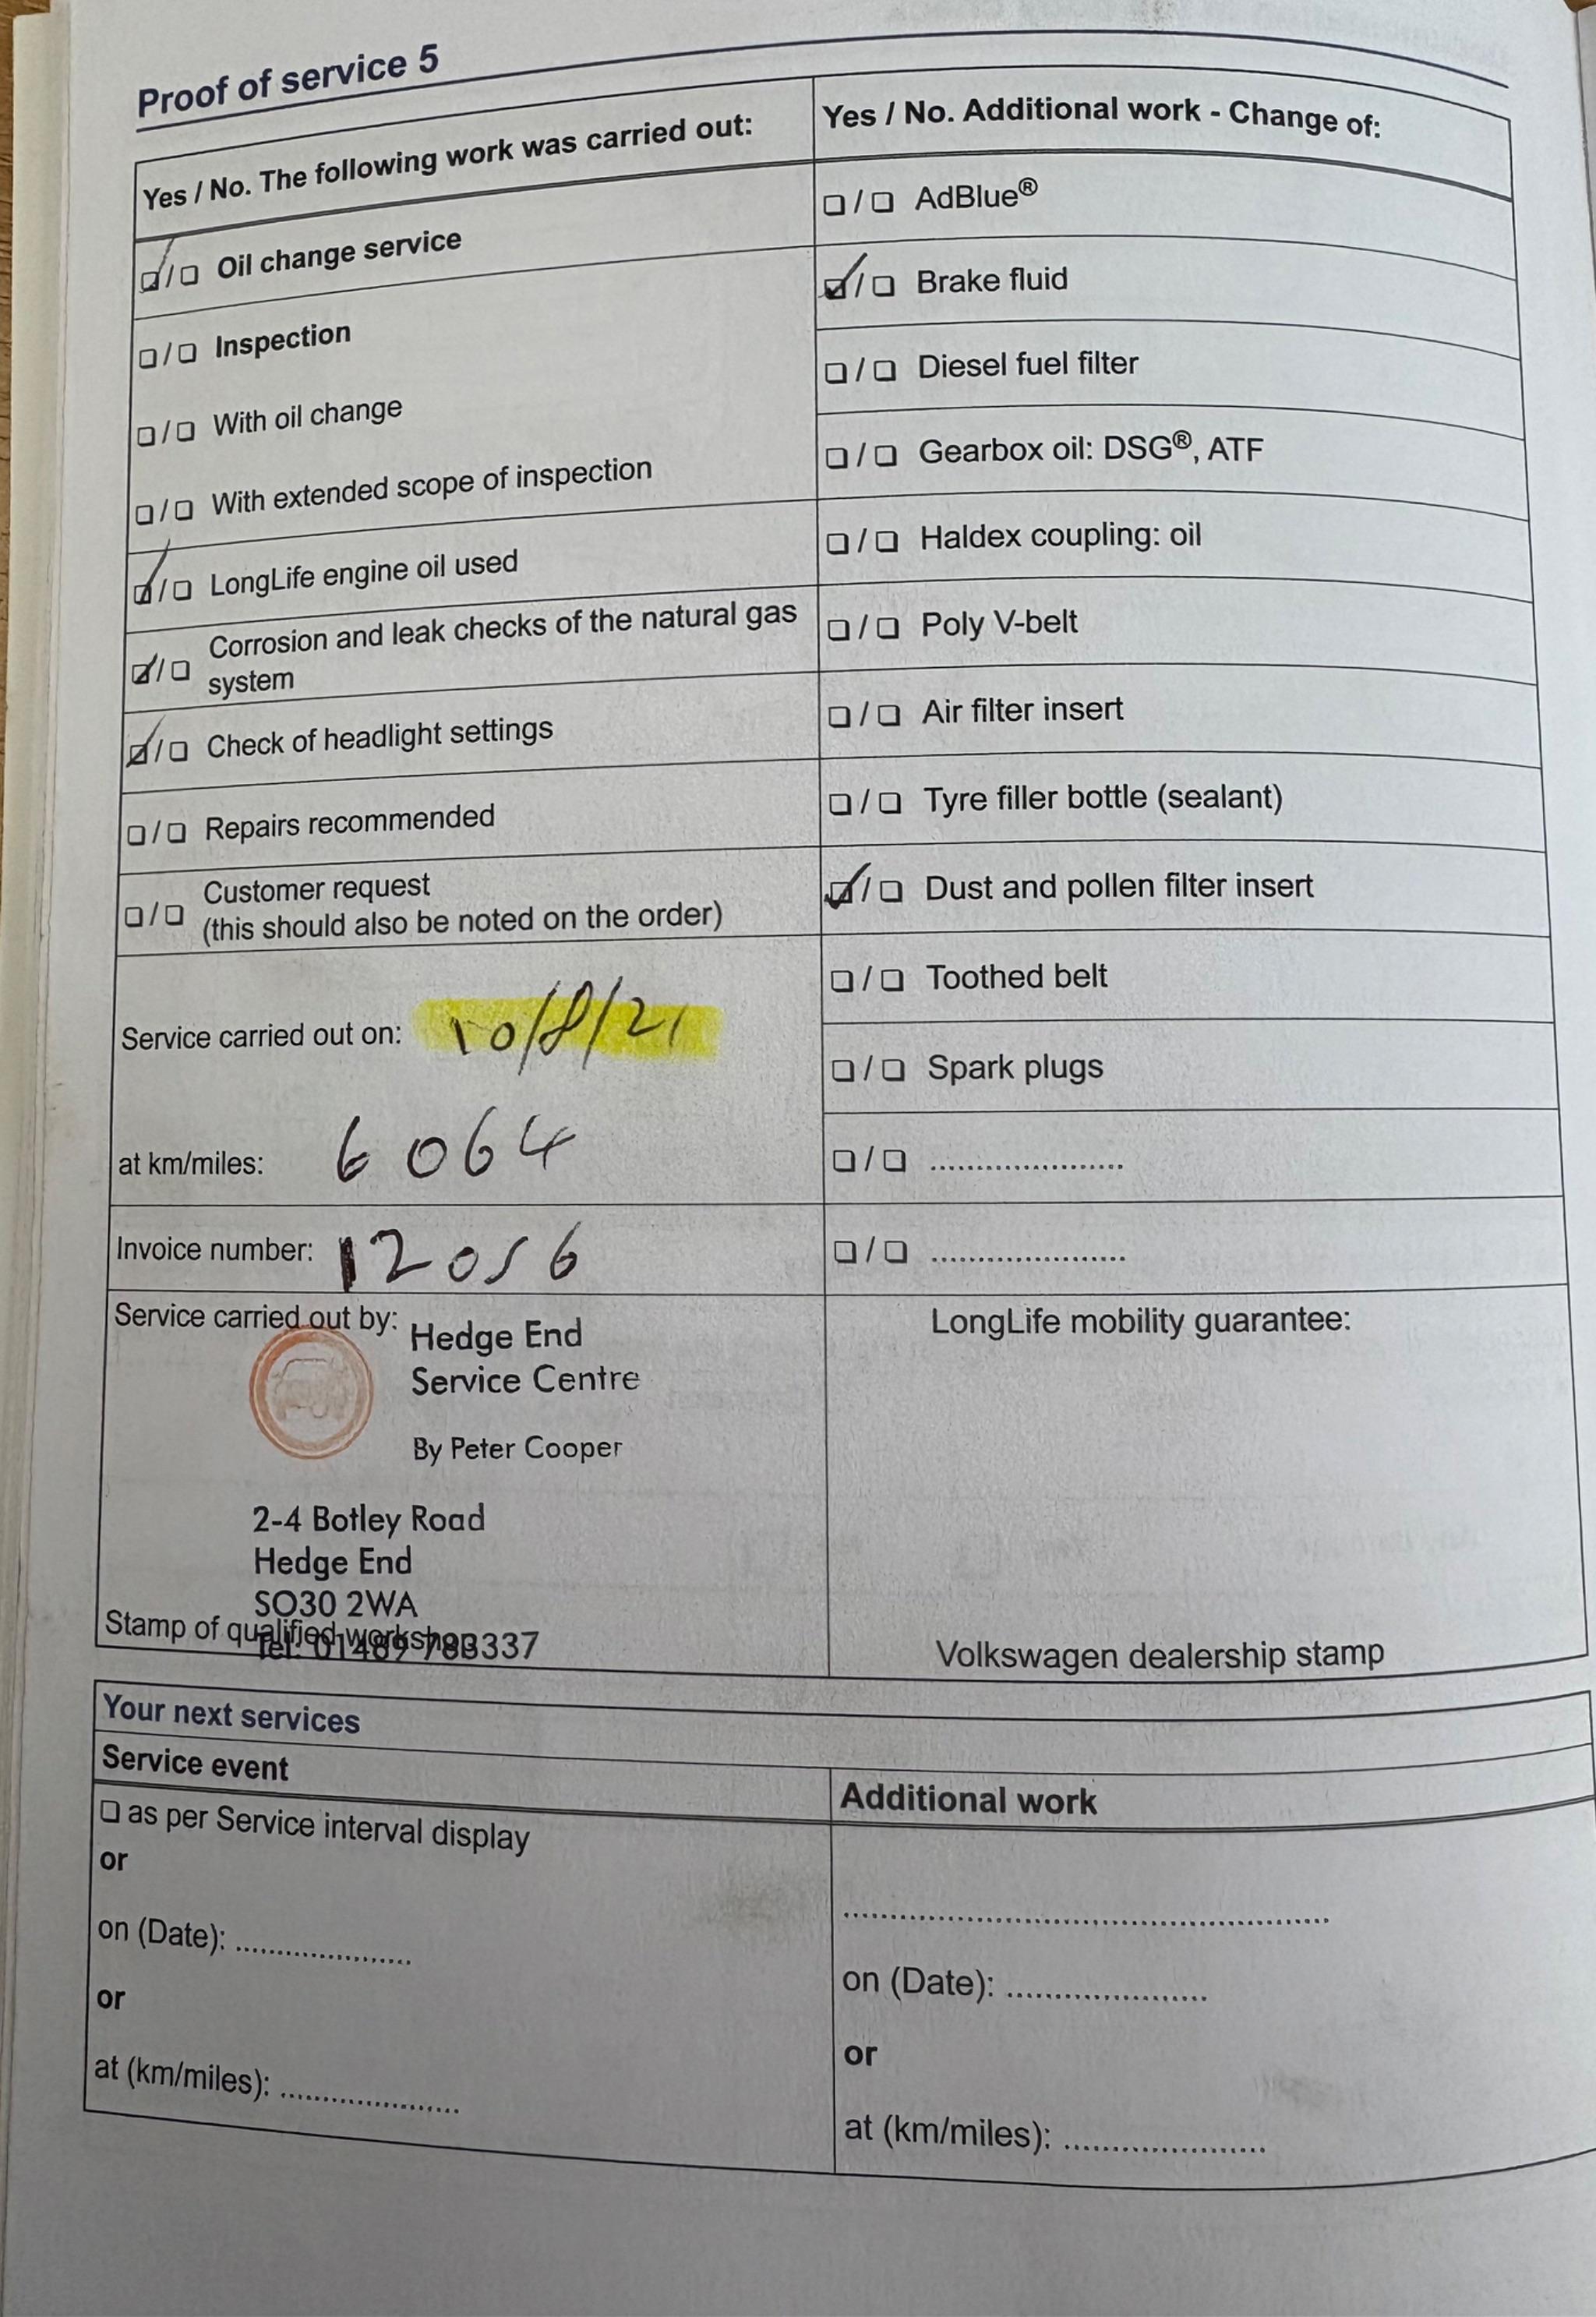 Proof of service 5
Yes / No. The following work was carried out:
☑/☐ Oil change service
☐/☐ Inspection
☐/☐ With oil change
☐/☐ With extended scope of inspection
☑/☐ LongLife engine oil used
☑/☐ Corrosion and leak checks of the natural gas
system
☑/☐ Check of headlight settings
☐/☐ Repairs recommended
☐/☐ Customer request
(this should also be noted on the order)
Service carried out on: 10/8/21
at km/miles: 6064
Invoice number: 12056
Service carried out by:
Hedge End
Service Centre
By Peter Cooper
2-4 Botley Road
Hedge End
SO30 2WA
Tel: 01489 783337
Stamp of qualified workshop
Yes / No. Additional work - Change of:
☐/☐ AdBlue®
☑/☐ Brake fluid
☐/☐ Diesel fuel filter
☐/☐ Gearbox oil: DSG®, ATF
☐/☐ Haldex coupling: oil
☐/☐ Poly V-belt
☐/☐ Air filter insert
☐/☐ Tyre filler bottle (sealant)
☑/☐ Dust and pollen filter insert
☐/☐ Toothed belt
☐/☐ Spark plugs
☐/☐ ......................
☐/☐ ......................
LongLife mobility guarantee:
Volkswagen dealership stamp
Your next services
Service event
☐ as per Service interval display
or
on (Date): ....................
or
at (km/miles): ....................
Additional work
..................................................
on (Date): ......................
or
at (km/miles): ......................